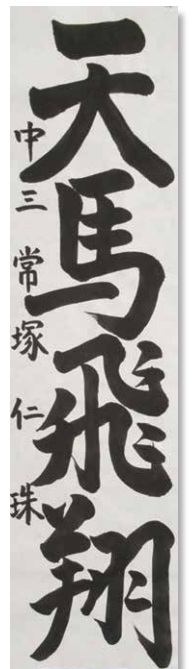 天馬飛翔
中三 常塚 仁珠